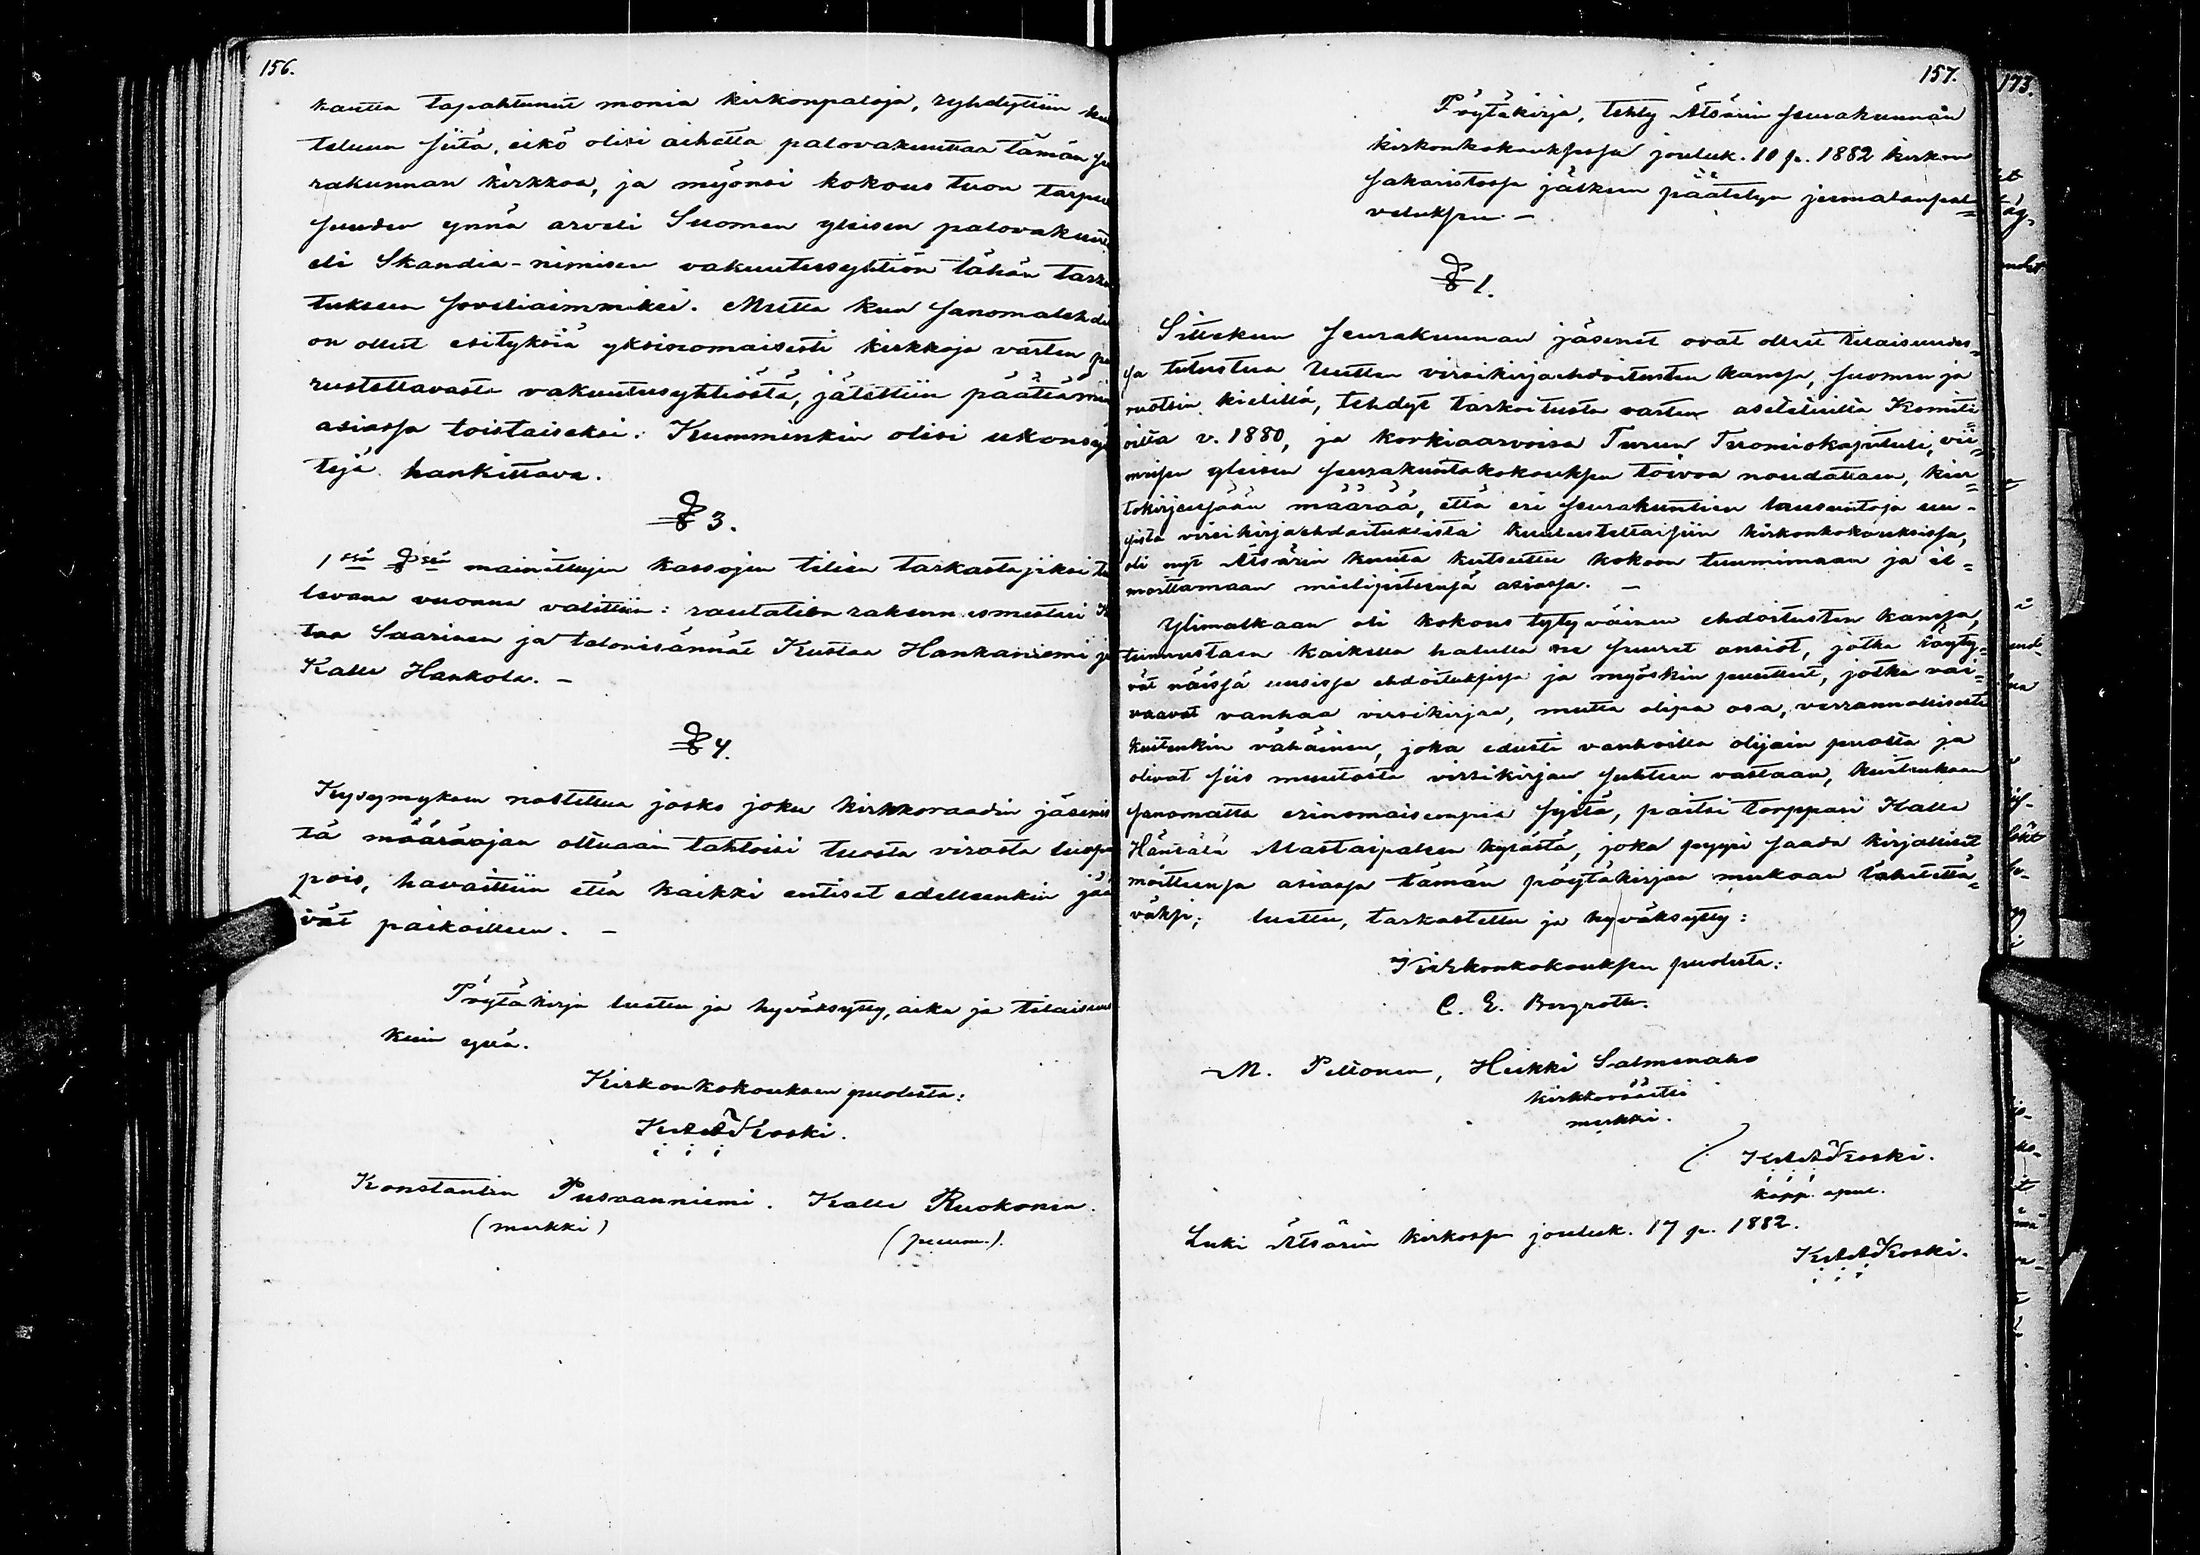 156.
kautta tapahtunut monia kirkonpaloja, ryhdyttiin
teluun siitä, eikö olisi aihetta palovakuuttaa tämän seu
rakunnan kirkkoa, ja myönsi kokous tuon tarpee
suuden ynnä arveli Suomen yleisen palovakuu
eli Skandia-nimisen vakuutusyhtiön tähän tarko
tukseen soveliaimmiksi. Mutta kun sanomalehd
on ollut esityksiä yksinomaisesti kirkkoja varten pe
rustettavasta vakuutusyhtiöstä, jätettiin päättämi
asiassa toistaiseksi. Kumminkin olisi ukons
tejä hankittava.
§ 3.
1ssä §ssä mainittujen kassojen tilien tarkastajiksi tu
levana vuonna valittiin: rautatien rakennusmestari
taa Saarinen ja talonisännät Kustaa Hankaniemi ja
Kalle Hankola. —
§ 4.
Kysymyksen nostettua josko joku kirkkoraadin jäsenis
tä määräajan oltuaan tahtoisi tuosta virasta luopu
pois, havaittiin että kaikki entiset edelleenkin jää
vät paikoilleen. —
Pöytäkirja luettu ja hyväksytty, aika ja tilaisuus
kuin yllä.
Kirkonkokouksen puolesta:
K A A Koski.
Konstantin Pusaanniemi. Kalle Ruokonen.
(merkki) (puum.).
157.
Pöytäkirja, tehty Ätsärin seurakunnan
kirkonkokouksessa jouluk. 10 p. 1882 kirkon
sakaristossa jälkeen päätetyn jumalanpal=
veluksen. —
§ 1.
Sittekun seurakunnan jäsenet ovat olleet tilaisuudes=
sa tutustua uutten virsikirjaehdoitusten kanssa, suomen ja
ruotsin kielillä, tehdyt tarkoitusta varten asetetuilta Komite
oilta v. 1880, ja korkiaarvoisa Turun Tuomiokapituli, vii=
meisen yleisen seurakuntakokouksen toivoa noudattaen, kier=
tokirjeessään määrää, että eri seurakuntien lausuntoja uu=
sista virsikirjaehdoituksista kuulusteltaisiin kirkonkokouksissa,
oli nyt Ätsärin kunta kutsuttu kokoon tuumimaan ja il=
moittamaan mielipiteensä asiassa. —
Ylimalkaan oli kokous tytyväinen ehdoitusten kanssa,
tunnustaen kaikella halulla ne suuret ansiot, jotka löyty=
vät näissä uusissa ehdoituksissa ja myöskin puutteet, jotka vai=
vaavat vanhaa virsikirjaa, mutta olipa osa, verrannollisesti
kuitenkin vähäinen, joka edusti vanhoilla olijain puolta ja
olivat siis muutosta virsikirjan suhteen vastaan, kuitenkaan
sanomatta erinomaisempia syitä, paitsi torppari Kalle
Hänsälä Mastaipaleen kylästä, joka pyysi saada kirjalliset
moitteensa asiassa tämän pöytäkirjan mukaan lähetettä=
väksi; luettu, tarkastettu ja hyväksytty:
Kirkonkokouksen puolesta:
C. E. Bergroth.
M. Peltonen, Heikki Salmenaho
kirkkoväärti
merkki.
K A A Koski.
kapp. apul.
Luki Ätsärin kirkossa jouluk. 17 p. 1882.
K A A Koski.
173.